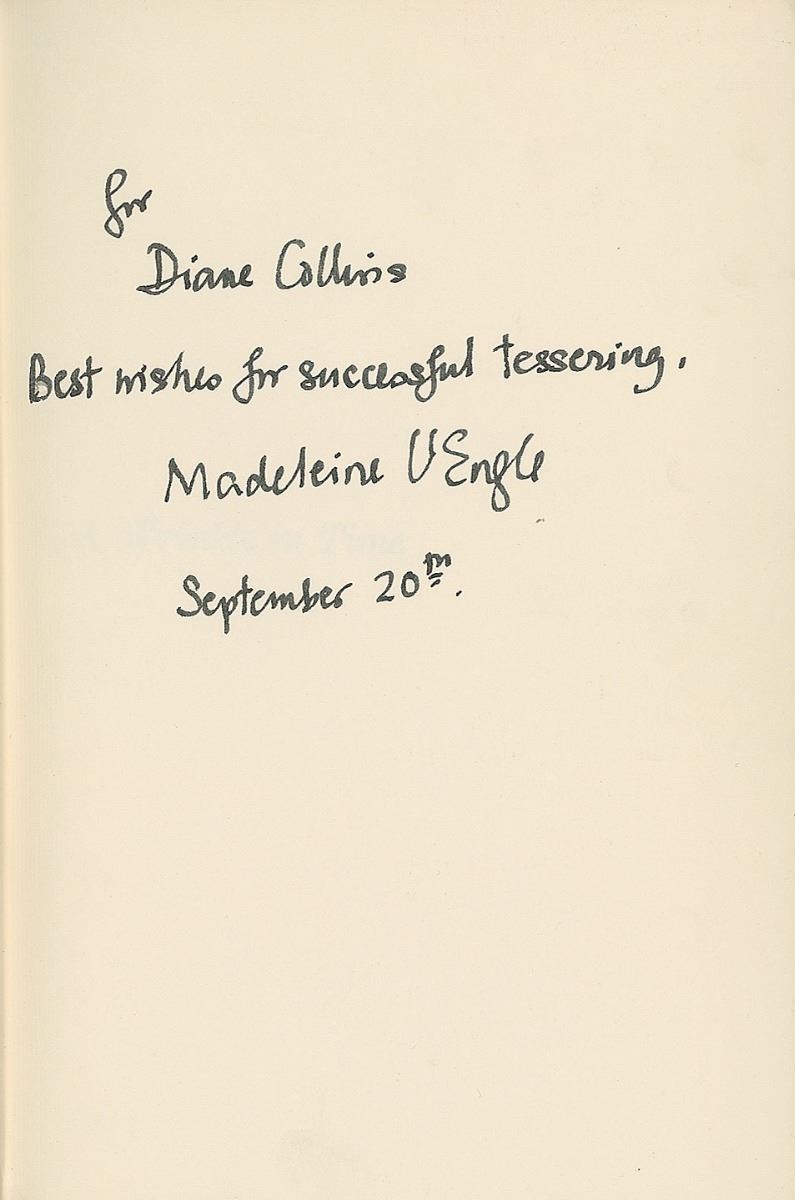 for
Diane Collins
Best wishes for successful tessering.
Madeleine L'Engle
September 20th.